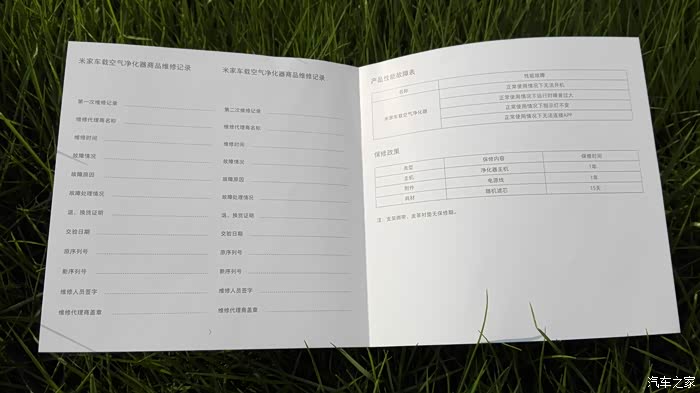 米家车载空气净化器商品维修记录
第一次维修记录
维修代理商名称
维修时间
故障情况
故障原因
故障处理情况
退、换货证明
交验日期
原序列号
新序列号
维修人员签字
维修代理商盖章
米家车载空气净化器商品维修记录
第二次维修记录
维修代理商名称
维修时间
故障情况
故障原因
故障处理情况
退、换货证明
交验日期
原序列号
新序列号
维修人员签字
维修代理商盖章
产品性能故障表
名称 性能故障
米家车载空气净化器 正常使用情况下无法开机
正常使用情况下运行时噪音过大
正常使用情况下指示灯不亮
正常使用情况下无法连接APP
保修政策
类型 保修内容 保修时间
主机 净化器主机 1年
附件 电源线 1年
耗材 随机滤芯 15天
注：支架绑带、皮革衬垫无保修期。
汽车之家